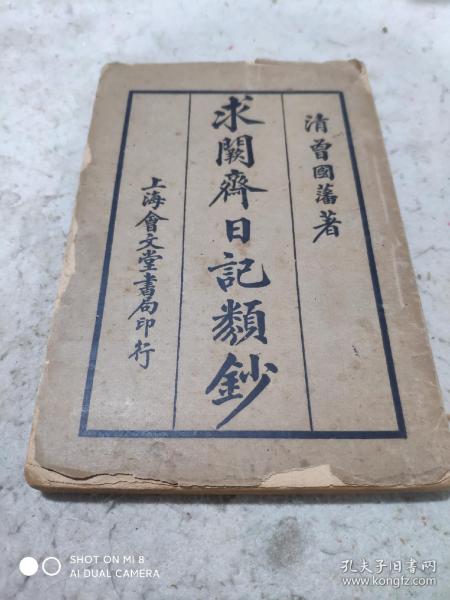 清曾國藩著
求闕齋日記類鈔
上海會文堂書局印行
SHOT ON MI 8
AI DUAL CAMERA
孔夫子旧书网
www.kongfz.com